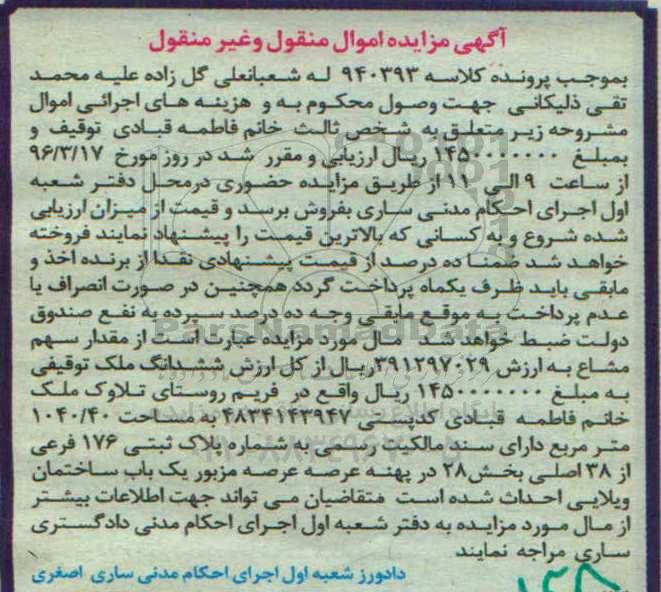 آگهی مزایده اموال منقول وغیر منقول
بموجب پرونده کلاسه ۹۴۰۳۹۳ له شعبانعلی گل زاده علیه محمد
تقی ذلیکانی جهت وصول محکوم به و هزینه های اجرائی اموال
مشروحه زیر متعلق به شخص ثالث خانم فاطمه قبادی توقیف و
بمبلغ ۱۴۵۰۰۰۰۰۰۰ ریال ارزیابی و مقرر شد در روز مورخ ۹۶/۳/۱۷
از ساعت ۹ الی ۱۱ از طریق مزایده حضوری درمحل دفتر شعبه
اول اجرای احکام مدنی ساری بفروش برسد و قیمت از میزان ارزیابی
شده شروع و به کسانی که بالاترین قیمت را پیشنهاد نمایند فروخته
خواهد شد ضمنا ده درصد از قیمت پیشنهادی نقدا از برنده اخذ و
مابقی باید ظرف یکماه پرداخت گردد همچنین در صورت انصراف یا
عدم پرداخت به موقع مابقی وجه ده درصد سپرده به نفع صندوق
دولت ضبط خواهد شد مال مورد مزایده عبارت است از مقدار سهم
مشاع به ارزش ۳۹۱۲۹۷۰۲۹ریال از کل ارزش ششدانگ ملک توقیفی
به مبلغ ۱۴۵۰۰۰۰۰۰۰ ریال واقع در فریم روستای تلاوک ملک
خانم فاطمه قبادی کدپستی ۴۸۳۴۱۴۳۹۴۷ به مساحت ۱۰۴۰/۴۰
متر مربع دارای سند مالکیت رسمی به شماره پلاک ثبتی ۱۷۶ فرعی
از ۳۸ اصلی بخش۲۸ در پهنه عرصه عرصه مزبور یک باب ساختمان
ویلایی احداث شده است متقاضیان می تواند جهت اطلاعات بیشتر
از مال مورد مزایده به دفتر شعبه اول اجرای احکام مدنی دادگستری
ساری مراجه نمایند
دادورز شعبه اول اجرای احکام مدنی ساری اصغری
ParsNamadData